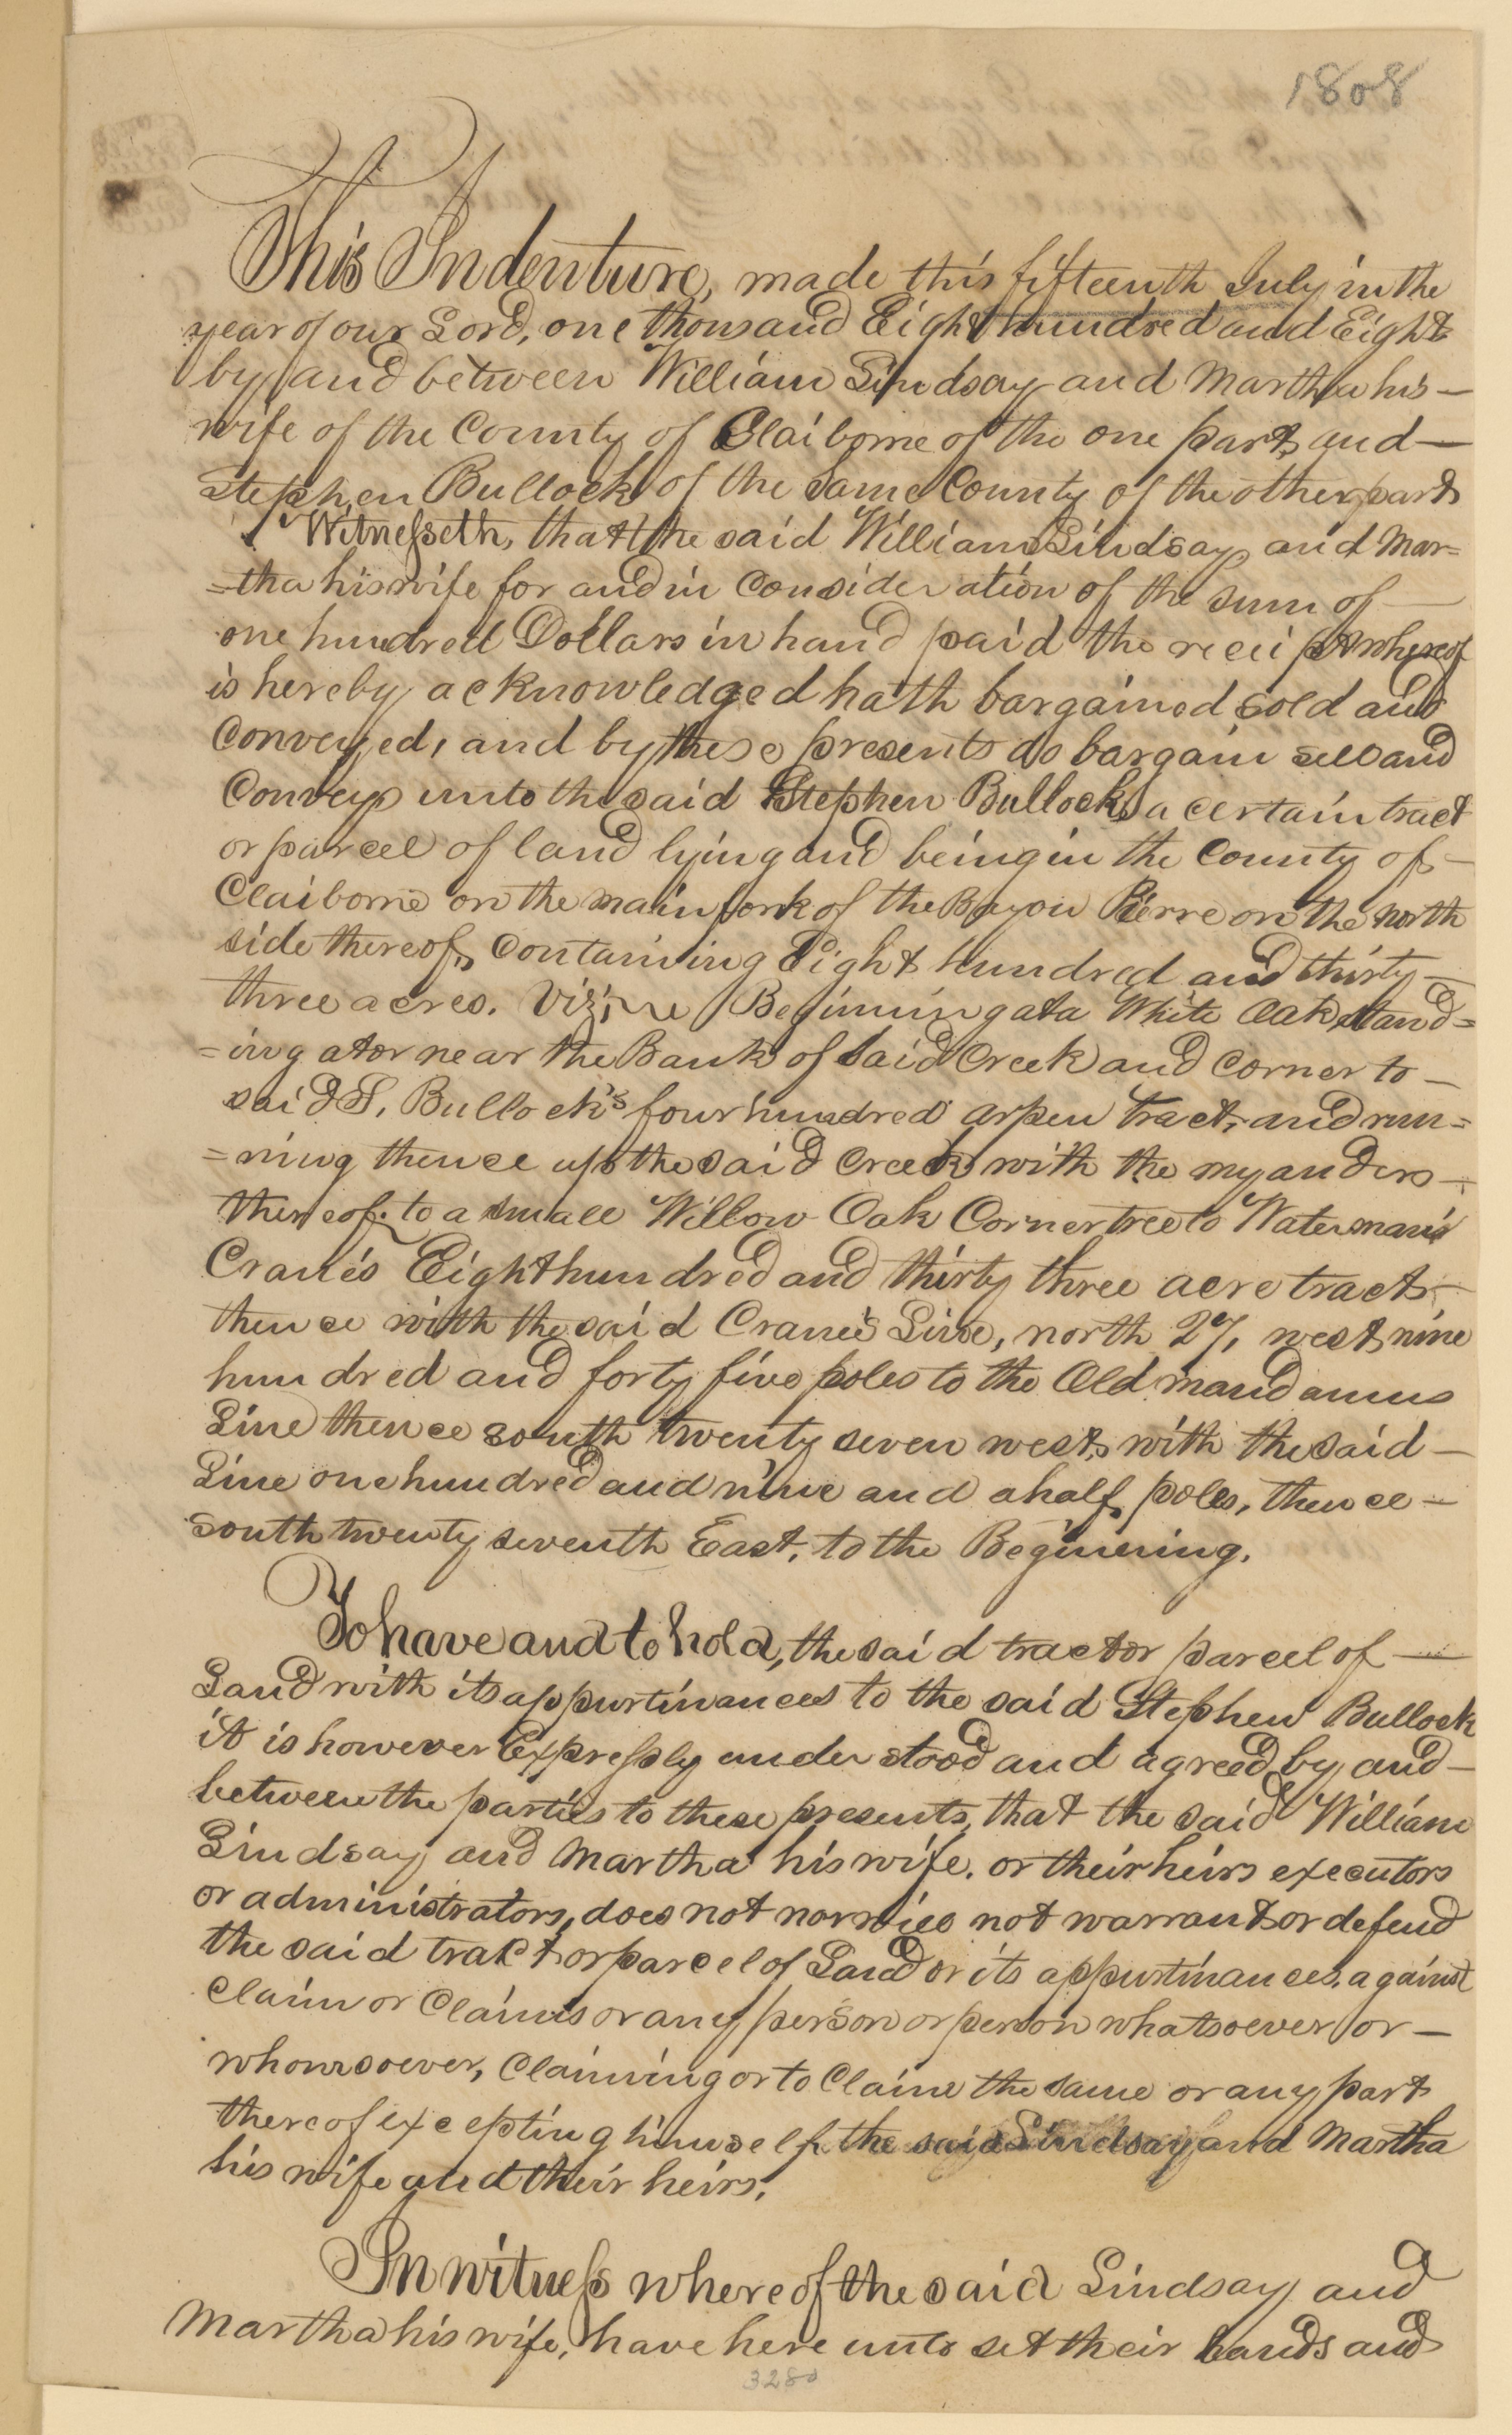 1808
This Indenture, made this fifteenth July in the
year of our Lord, one thousand Eight hundred and Eight
by and between William Lindsay and Martha his —
wife of the County of Claiborne of the one part, and —
Stephen Bullock of the Same County of the other part
Witnesseth, that the said William Lindsay and Mar=
=tha his wife for and in Consideration of the sum of —
one hundred Dollars in hand paid the receipt whereof
is hereby acknowledged hath bargained sold and
Conveyed, and by these presents do bargain sell and
Convey unto the said Stephen Bullock, a certain tract
or parcel of land lying and being in the County of —
Claiborne on the main fork of the Bayou Pierre on the north
side thereof, Containing Eight hundred and thirty —
three acres. Viz; Beginning at a White Oak stand=
=ing at or near the Bank of said Creek and Corner to —
said S. Bullock's four hundred arpen tract, and run=
=ning thence up the said Creek with the myanders —
thereof. to a small Willow Oak Corner tree to Waterman
Crane's Eight hundred and thirty three acre tract —
thence with the said Crane's Line, north 27, west, nine
hundred and forty five poles to the Old mandamus
Line thence south twenty seven west, with the said —
Line one hundred and nine and a half poles, thence —
south twenty seventh East, to the Beginning.
To have and to hold, the said tract or parcel of —
Land with its appurtinances to the said Stephen Bullock
it is however Expressly understood and agreed by and —
between the parties to these presents, that the said William
Lindsay and Martha his wife. or their heirs executors
or administrators, does not nor will not warrant or defend
the said tract or parcel of Land or its appurtinances, against
Claim or Claims or any person or person whatsoever or —
whomsoever, Claiming or to Claim the same or any part
thereof excepting himself the said Lindsay and Martha
his wife and their heirs.
In witness whereof the said Lindsay and
Martha his wife, have here unto set their hands and
3280